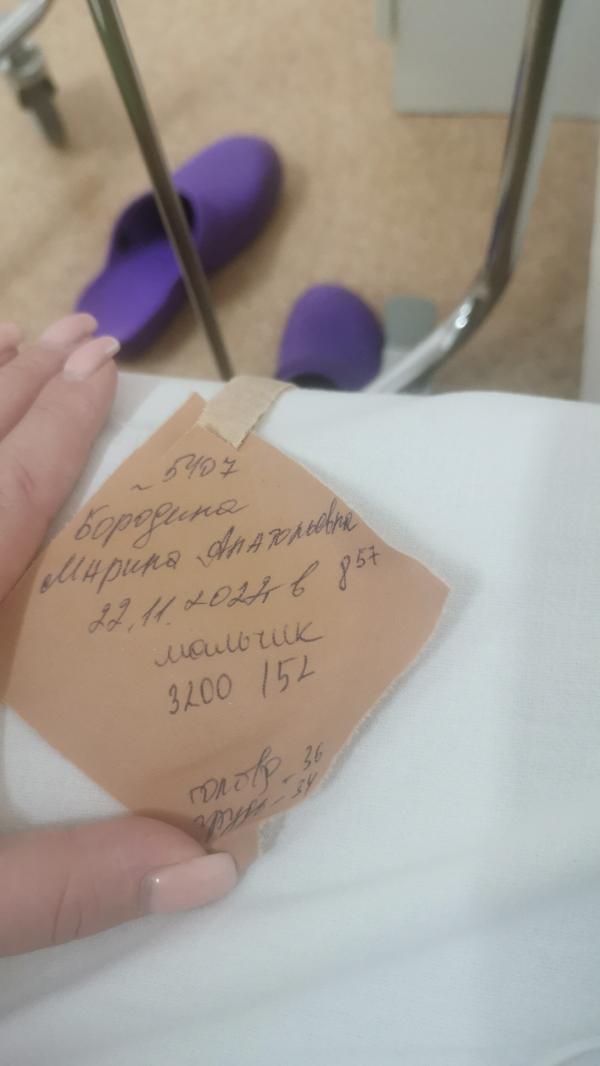 ~ 5407
Бородина
Марина Анатольевна
22.11.2022г в 8 57
мальчик
3200 / 52
голова - 36
грудь - 34